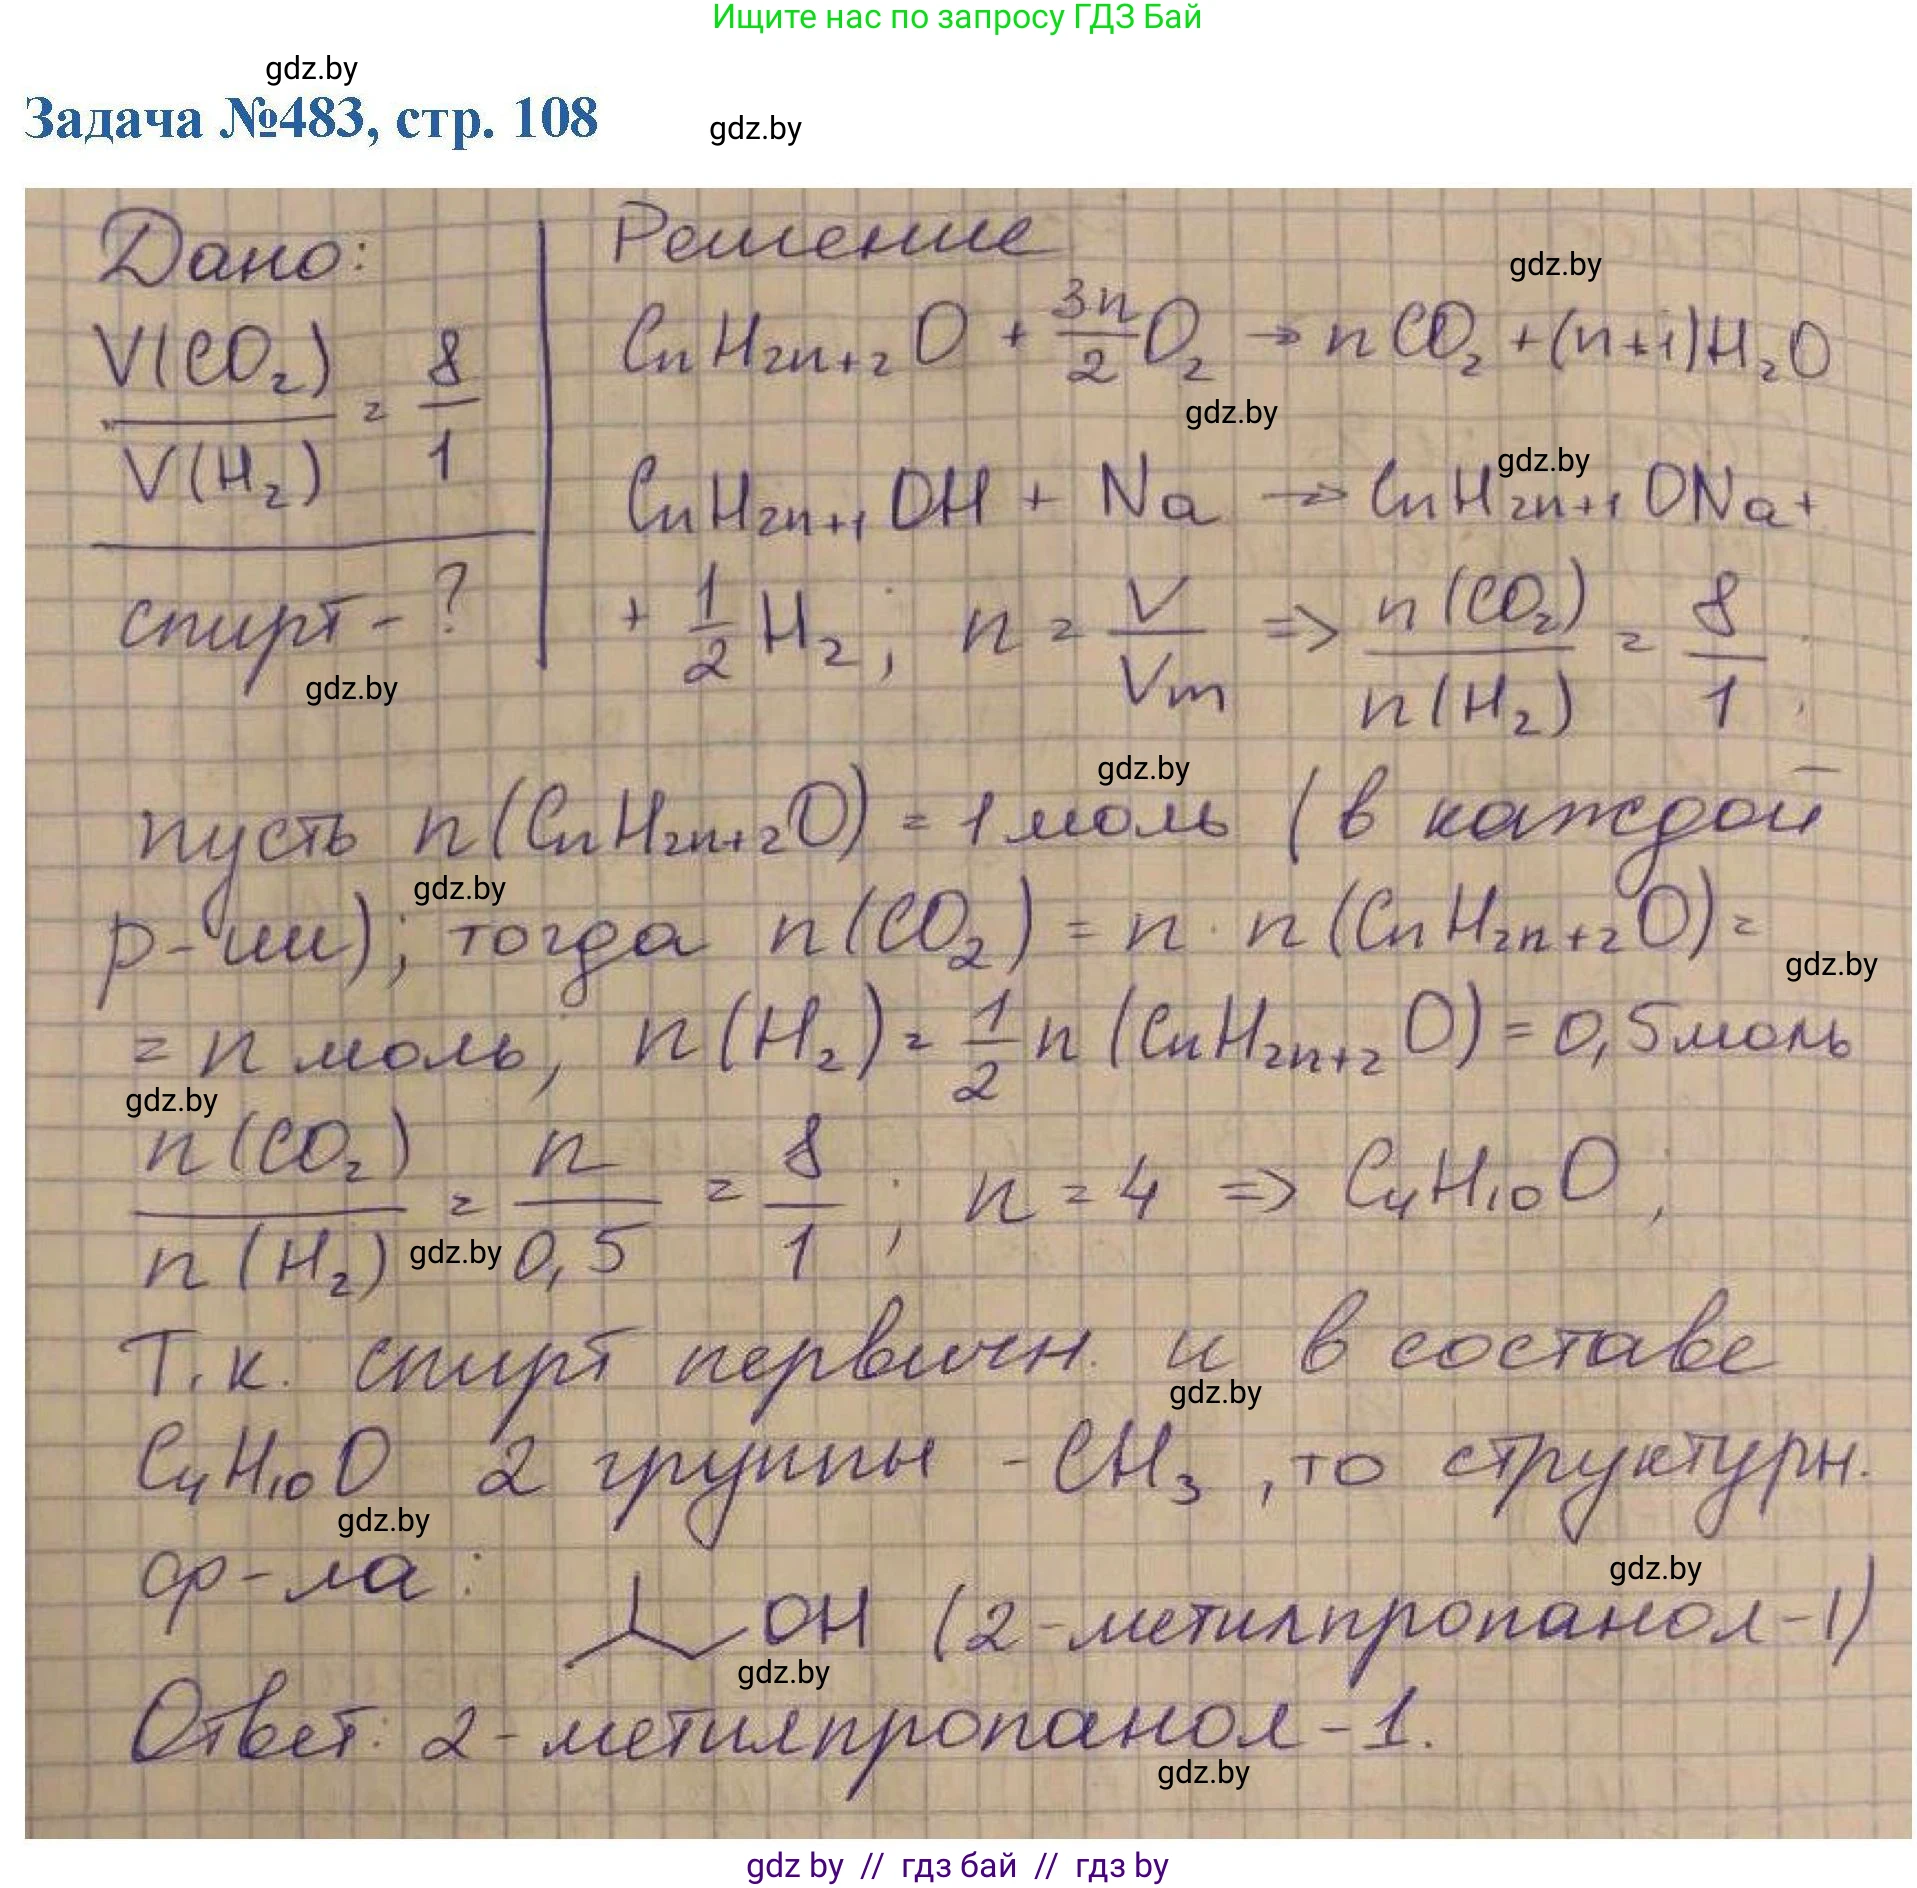 Ищите нас по запросу ГДЗ Бай
gdz.by
Задача №483, стр. 108
gdz.by
Дано:
V(CO₂)/V(H₂) = 8/1
спирт - ?
gdz.by
Решение
gdz.by
CnH2n+2O + 3n/2 O₂ → nCO₂ + (n+1)H₂O
gdz.by
gdz.by
CnH2n+1OH + Na → CnH2n+1ONa +
+ 1/2 H₂; n = V/Vm => n(CO₂)/n(H₂) = 8/1;
gdz.by
пусть n(CnH2n+2O) = 1 моль (в каждой
gdz.by
р-ии); тогда n(CO₂) = n · n(CnH2n+2O) =
gdz.by
= n моль; n(H₂) = 1/2 n(CnH2n+2O) = 0,5 моль
gdz.by
n(CO₂)/n(H₂) = n/0,5 = 8/1; n = 4 => C₄H₁₀O;
gdz.by
Т.к. спирт первичн. и в составе
gdz.by
C₄H₁₀O 2 группы -CH₃, то структурн.
gdz.by
ф-ла:
gdz.by
OH (2-метилпропанол-1)
gdz.by
Ответ: 2-метилпропанол-1.
gdz.by
gdz by // гдз бай // гдз by